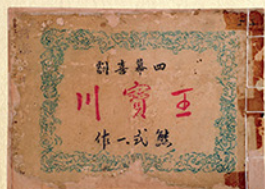 四幕喜劇
王寶川
熊式一作